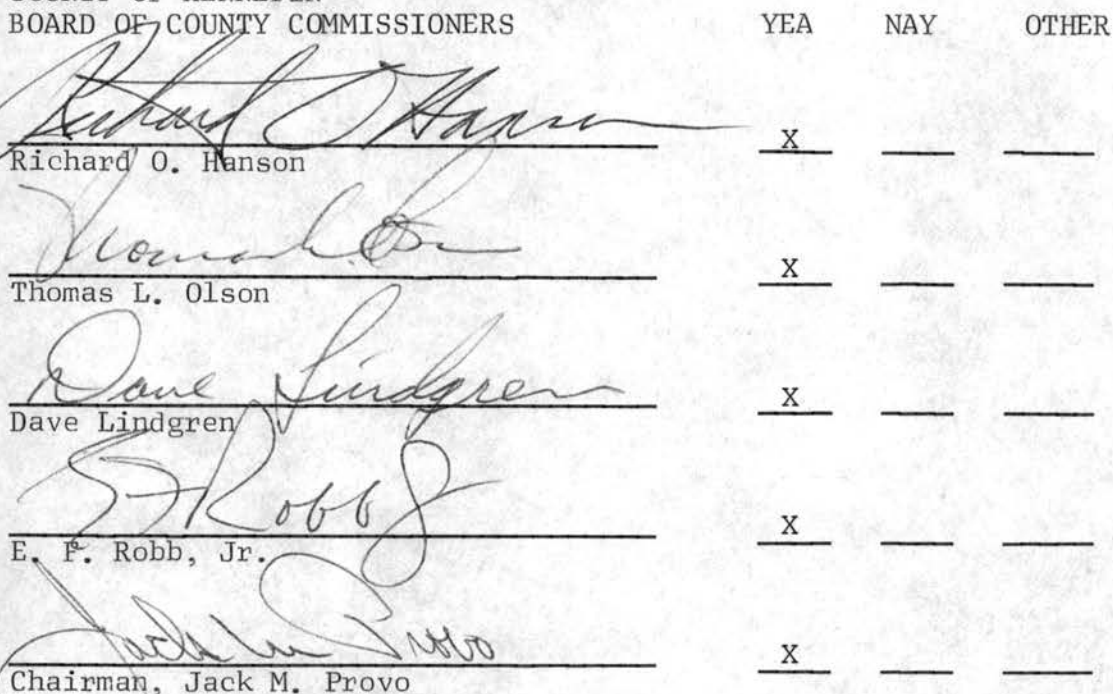 BOARD OF COUNTY COMMISSIONERS YEA NAY OTHER
Richard O Hanson X
Richard O. Hanson
Thomas L. Olson X
Thomas L. Olson
Dave Lindgren X
Dave Lindgren
E F Robb Jr X
E. F. Robb, Jr.
Jack M Provo X
Chairman, Jack M. Provo